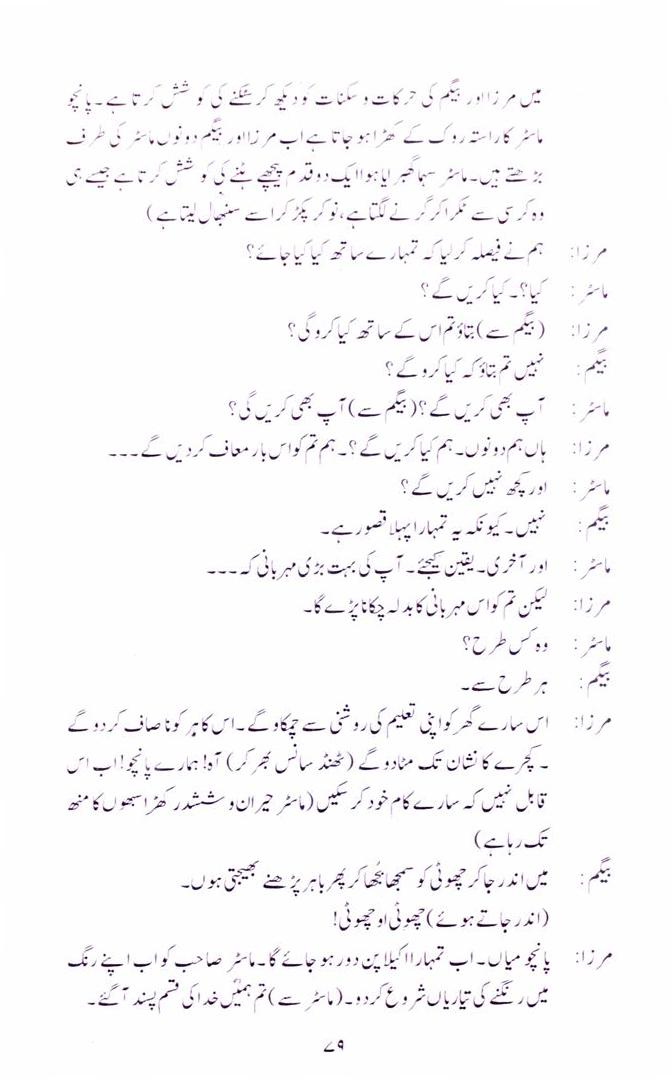 میں مرزا اور بیگم کی حرکات و سکنات کو دیکھ کر سٹکنے کی کوشش کرتا ہے۔ پانچو
ماسٹر کا راستہ روک کے کھڑا ہو جاتا ہے اب مرزا اور بیگم دونوں ماسٹر کی طرف
بڑھتے ہیں۔ ماسٹر سہما گھبرایا ہوا ایک دو قدم پیچھے ہٹنے کی کوشش کرتا ہے جیسے ہی
وہ کرسی سے ٹکرا کر گرنے لگتا ہے، نوکر پکڑ کر اسے سنبھال لیتا ہے)
مرزا: ہم نے فیصلہ کر لیا کہ تمہارے ساتھ کیا کیا جائے؟
ماسٹر: کیا؟۔ کیا کریں گے؟
مرزا: (بیگم سے) بتاؤ تم اس کے ساتھ کیا کرو گی؟
بیگم: نہیں تم بتاؤ کہ کیا کرو گے؟
ماسٹر: آپ بھی کریں گے؟ (بیگم سے) آپ بھی کریں گی؟
مرزا: ہاں ہم دونوں۔ ہم کیا کریں گے؟۔ ہم تم کو اس بار معاف کر دیں گے۔۔۔
ماسٹر: اور کچھ نہیں کریں گے؟
بیگم: نہیں۔ کیونکہ یہ تمہارا پہلا قصور ہے۔
ماسٹر: اور آخری۔ یقین کیجئے۔ آپ کی بہت بڑی مہربانی کہ۔۔۔
مرزا: لیکن تم کو اس مہربانی کا بدلہ چکانا پڑے گا۔
ماسٹر: وہ کس طرح؟
بیگم: ہر طرح سے۔
مرزا: اس سارے گھر کو اپنی تعلیم کی روشنی سے چمکاو گے۔ اس کا ہر کونا صاف کر دو گے
۔ کچرے کا نشان تک مٹا دو گے (ٹھنڈ سانس بھر کر) آہ! ہمارے پانچو! اب اس
قابل نہیں کہ سارے کام خود کر سکیں (ماسٹر حیران و ششدر کھڑا سبھوں کا منھ
تک رہا ہے)
بیگم: میں اندر جا کر چھوٹی کو سمجھا بُجھا کر پھر باہر پڑھنے بھیجتی ہوں۔
(اندر جاتے ہوئے) چھوٹی او چھوٹی!
مرزا: پانچو میاں۔ اب تمہارا اکیلا پن دور ہو جائے گا۔ ماسٹر صاحب کو اب اپنے رنگ
میں رنگنے کی تیاریاں شروع کر دو۔ (ماسٹر سے) تم ہمیں خدا کی قسم پسند آ گئے۔
۷۹